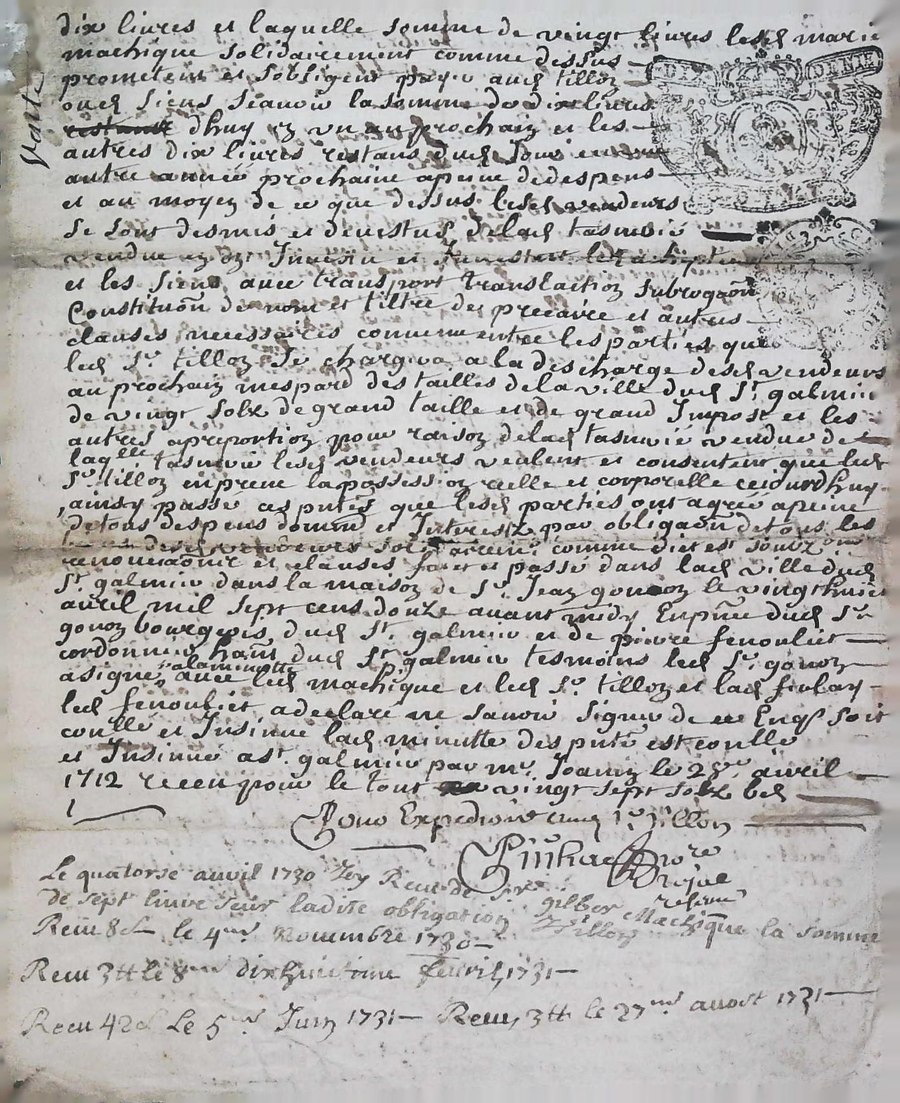 Vente
dix livres et laquelle somme de vingt livres lesd marie
machique solidairement comme dessus
prometent et sobligent payer aud tilloz
oud siens scavoir la somme de dix livres
restant dhuy ez un an prochain et les
autres dix livres restans dud jour en un
autre année prochaine apeine de despens
et au moyez de ce que dessus lesd vendeurs
se sont desmis et devestus delad tasnerie
vendue
et les siens avec transport translation subrogaõn
Constitutiõn de nom et tiltre de precaire et autres
clauses necessaires convenu entre les parties que
led Sr tilloz se chargera a la descharge desd vendeurs
au prochain mespard des tailles de la ville dud St galmier
de vingt solz de grand taille et de grand Impost et les
autres aproportion pour raison delad tasnerie vendue de
laqlle tasnerie lesd vendeurs veulent et consentent que led
Sr tilloz enprene la possession reelle et corporelle cejourdhuy
ainsy passé es pntes que lesd parties ont agreé apeine
de tous despens domm et Interestz par obligaõn de tous les
desd vendeurs solidairemt comme dict est soubz
renonciaõns et clauses faict et passé dans lad ville dud
St galmier dans la maison de Sr Jean gonoz le vingthuict
avril mil sept cens douze avant midy En pñce dud Sr
gonoz bourgeois dud St galmier et de pierre fenouliet
cordonnier habt dud St galmier tesmoins led Sr gonoz
asigné alaminutte avec led machique et led Sr tilloz et lad
led fenouliet a declaré ne scavoir signer de ce Enqs soit
coulle et Insinué lad minutte des pntes est coulle
et Insinué a St galmier par mr Joanin le 28me avril
1712 receu pour le tout vingt sept solz
Pour Expedition Sr tilloz
Le quatorse avril 1730 Jey Receu de Gilber Machique la somme
de sept livre sur ladite obligation Tilloz
Receu 8 le 4me Novembre 1730
Receu 3# le dixhuitieme fevrié 1731
Receu 42 Le 5me Juin 1731 Receu 3# le 27me avost 1731